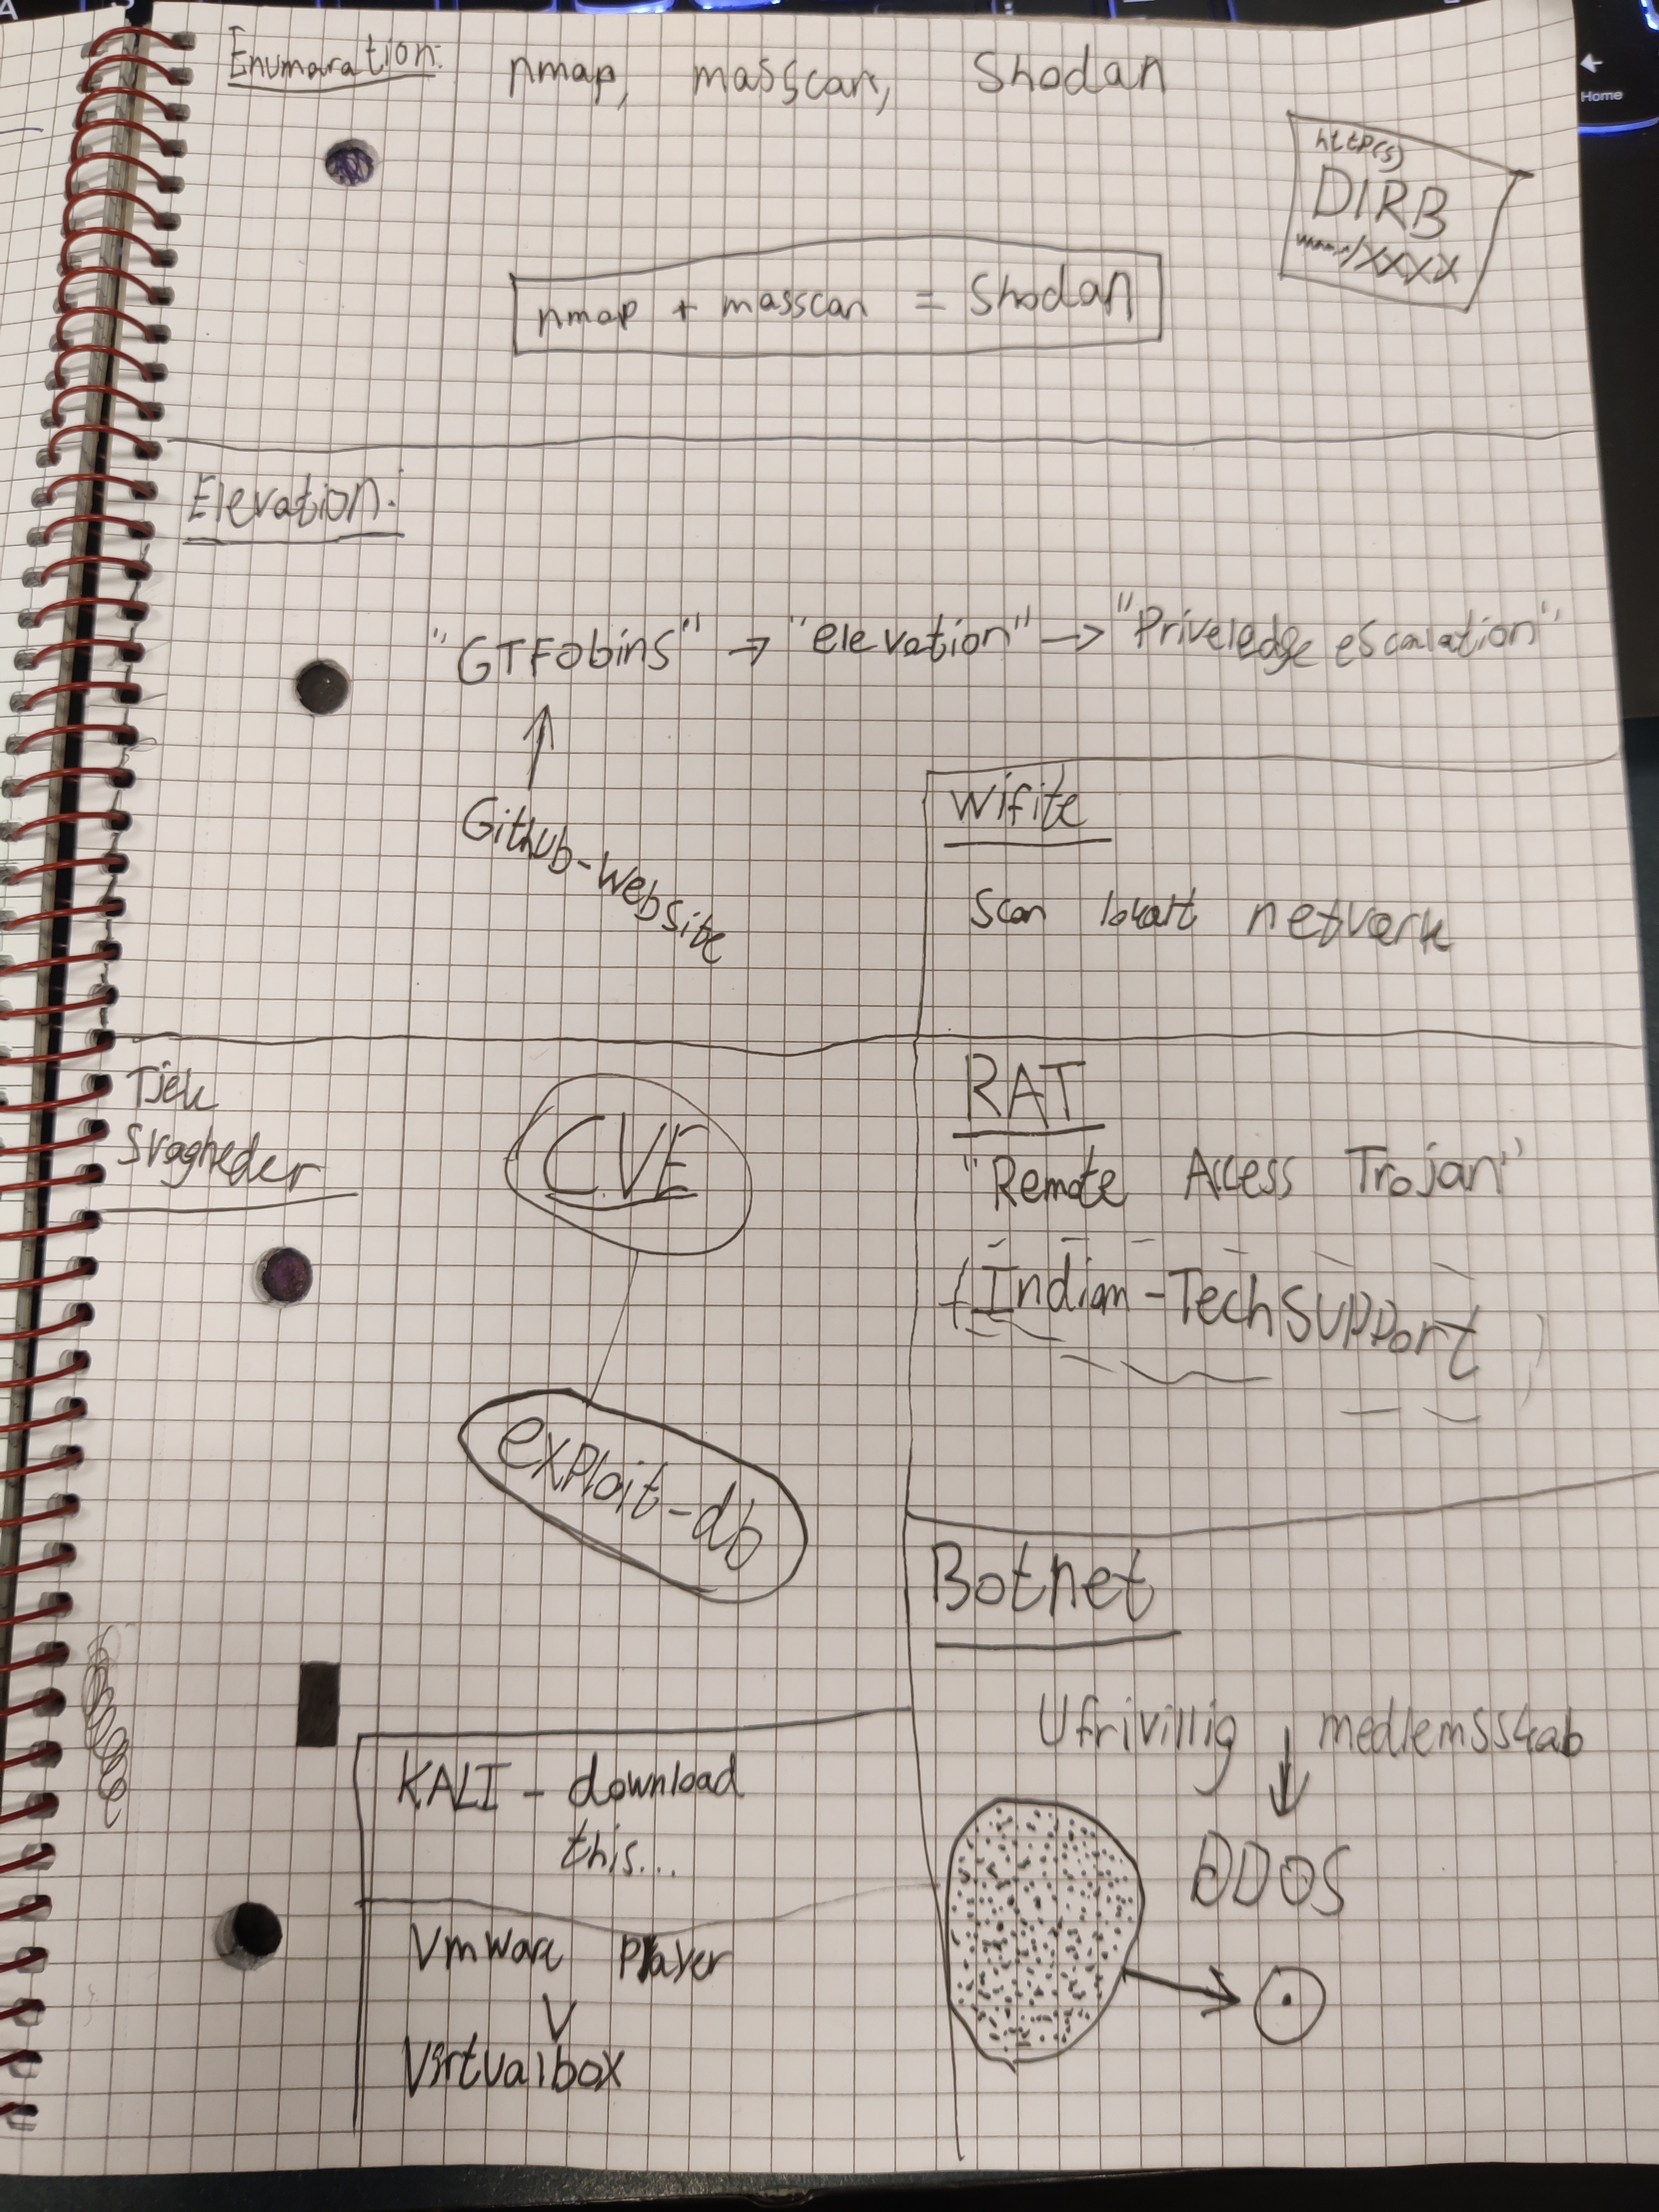 Enumaration: nmap, masscan, Shodan
http(s)
DIRB
/XXXX
nmap + masscan = Shodan
Elevation:
"GTFObins" → "elevation" → "Priveledge escalation"
↑
Github-Website
Wifite
Scan lokalt netværk
Tjek
Svagheder
C.V.E
exploit-db
RAT
"Remote Access Trojan"
(Indian-TechSupport)
Botnet
Ufrivillig medlemsskab
↓
DDOS
KALI - download
this...
VmWare Player
V
Virtualbox
Home